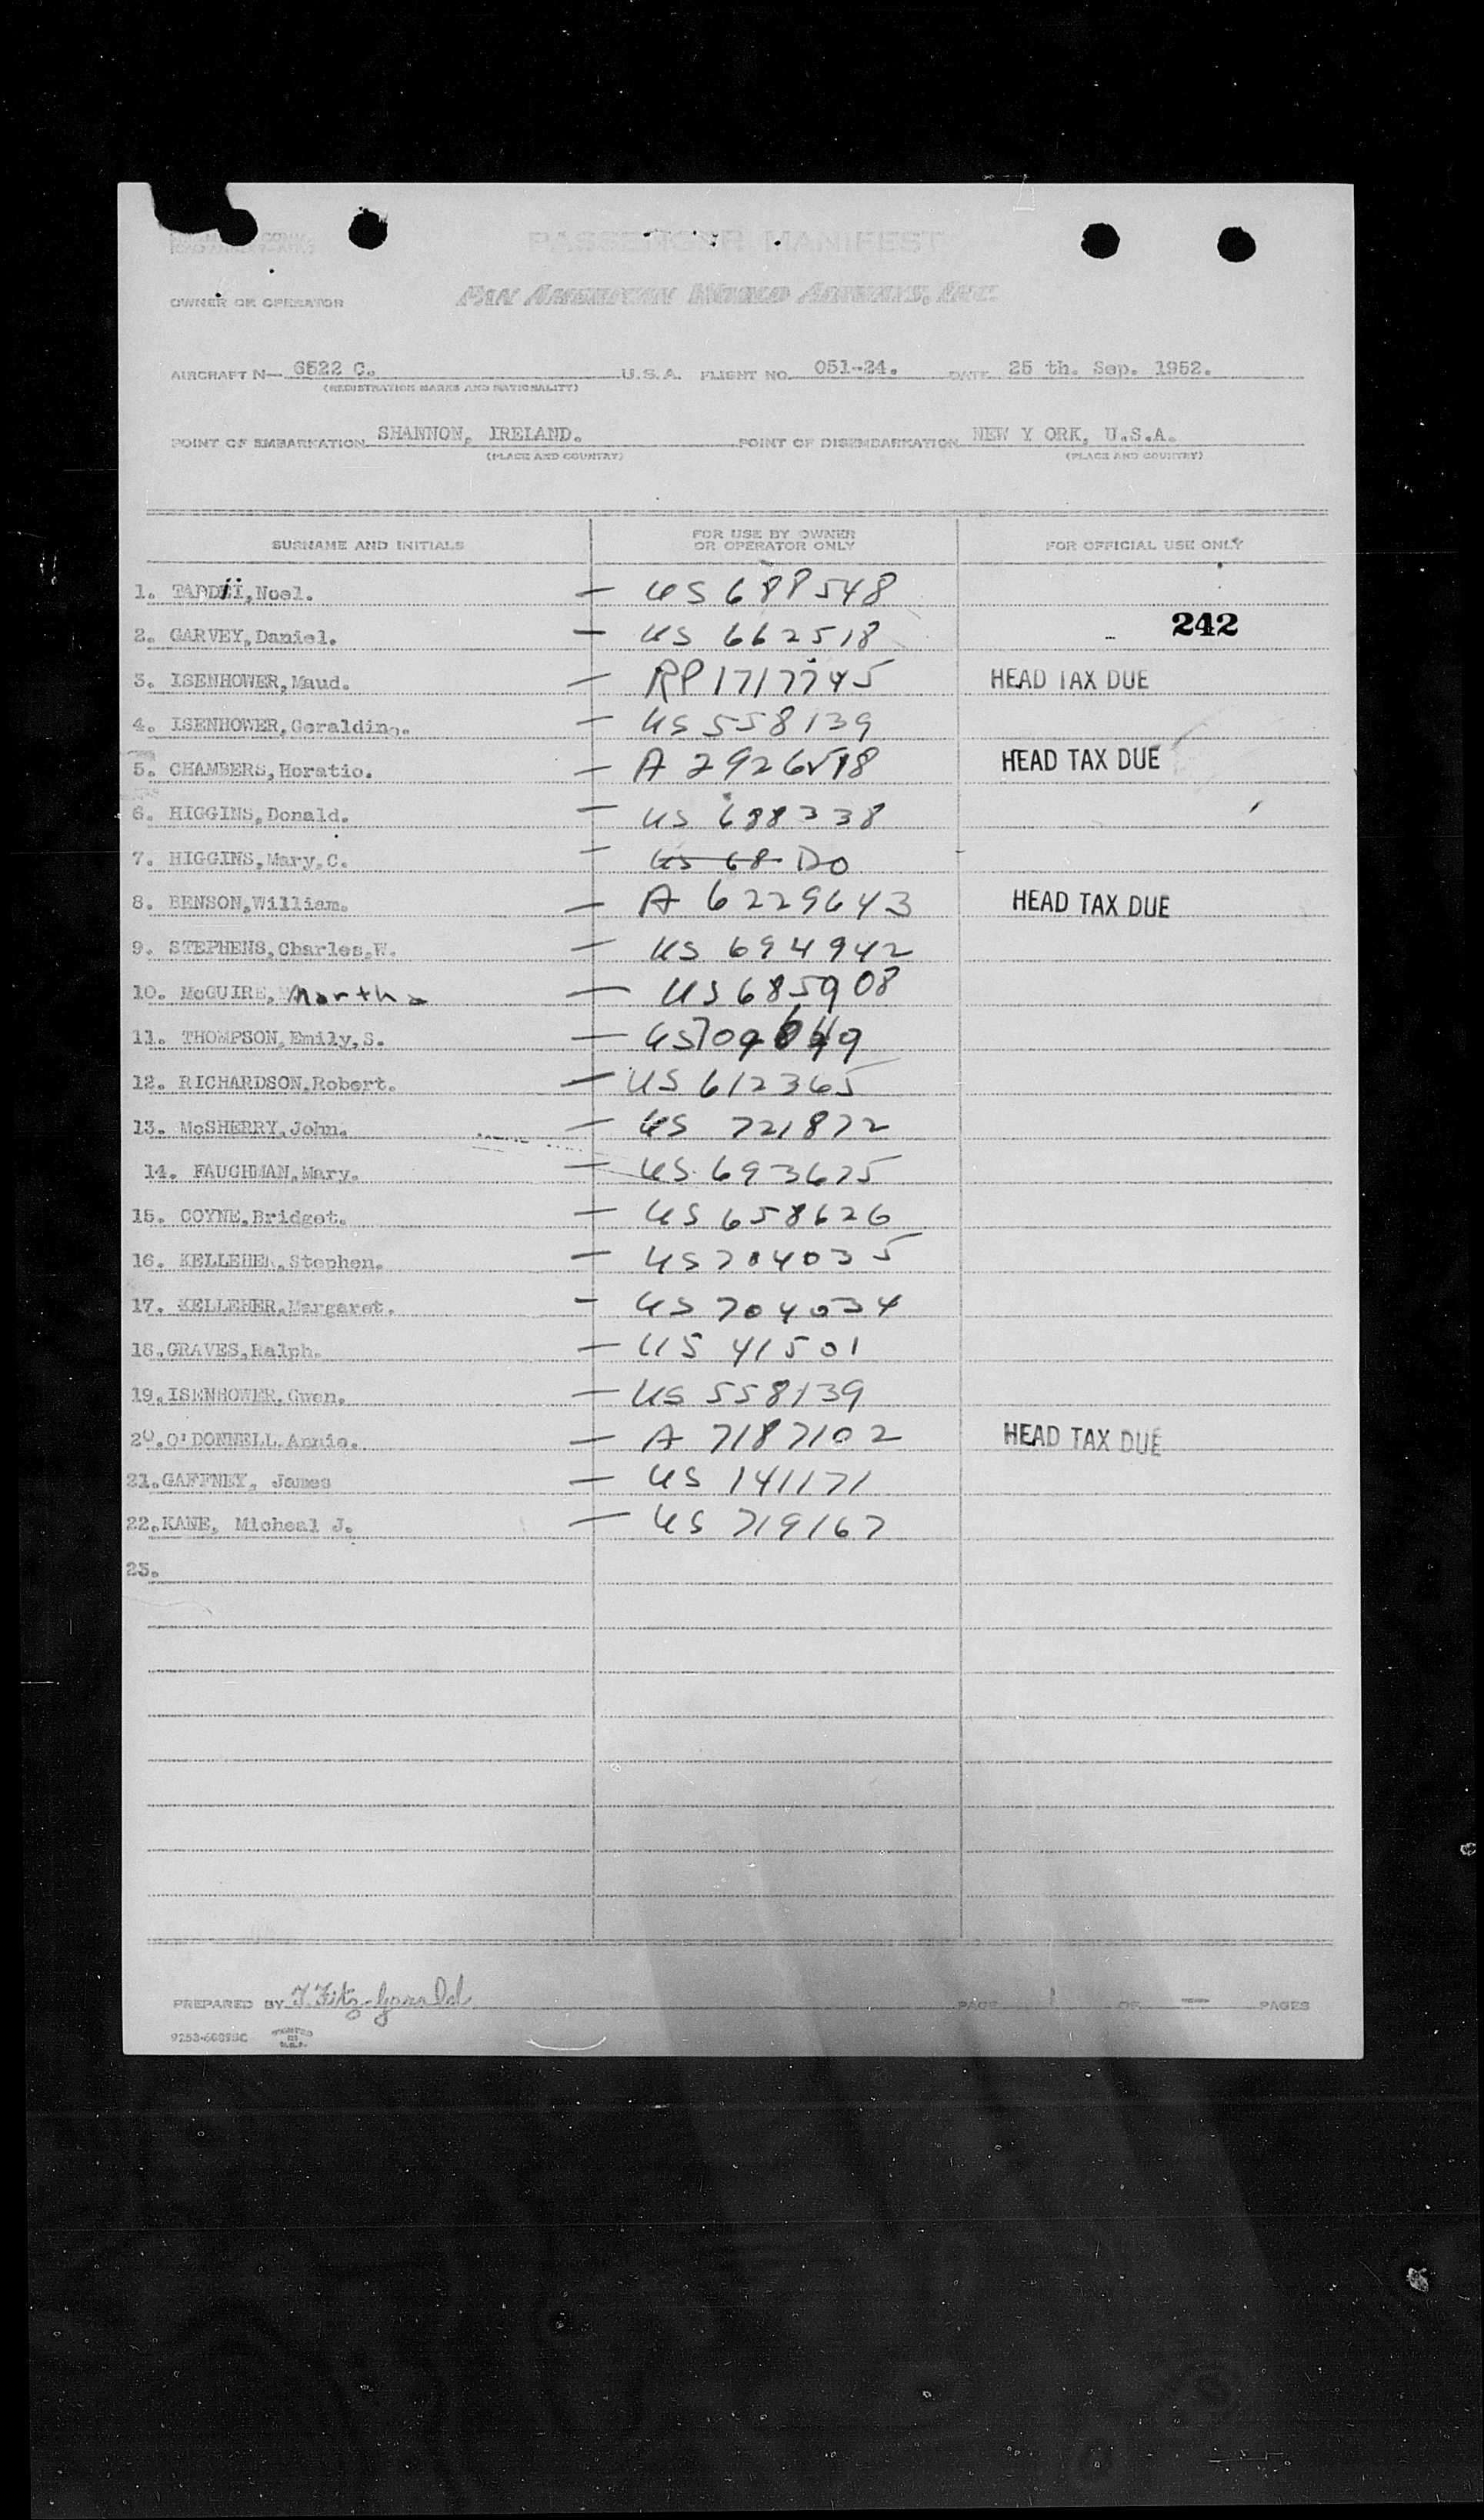 PASSENGER MANIFEST
OWNER OR OPERATOR PAN AMERICAN WORLD AIRWAYS, INC.
AIRCRAFT N— 6522 C. U.S.A. FLIGHT NO. 051-24. DATE 25 th. Sep. 1952.
(REGISTRATION MARKS AND NATIONALITY)
POINT OF EMBARKATION SHANNON, IRELAND. POINT OF DISEMBARKATION NEW Y ORK, U.S.A.
(PLACE AND COUNTRY) (PLACE AND COUNTRY)
SURNAME AND INITIALS FOR USE BY OWNER OR OPERATOR ONLY FOR OFFICIAL USE ONLY
1. Noel. — US 688548
242
2. GARVEY, Daniel. — US 662518
3. ISENHOWER, Maud. — RP 1717745 HEAD TAX DUE
4. ISENHOWER, Geraldine. — US 558139
5. CHAMBERS, Horatio. — A HEAD TAX DUE
6. HIGGINS, Donald. — US 688338
7. HIGGINS, Mary, C. — US 68 DO
8. BENSON, William. — A 6229643 HEAD TAX DUE
9. STEPHENS, Charles, W. — US 694942
10. McGUIRE, Martha — US 685908
11. THOMPSON, Emily, S. —
12. RICHARDSON, Robert. — US 612365
13. McSHERRY, John. — US 721872
14. FAUGHMAN, Mary. — US 693675
15. COYNE, Bridget. — US 658626
16. KELLEHER, Stephen. — US 704035
17. KELLEHER, Margaret. — US 704034
18. GRAVES, Ralph. — US 41501
19. ISENHOWER, Gwen. — US 558139
20. O'DONNELL, Annie. — A 7187102 HEAD TAX DUE
21. GAFFNEY, James — US 141171
22. KANE, Micheal J. — US 719167
23.
PREPARED BY T. Fitz-Gerald PAGE 1 OF — PAGES
PRINTED IN U.S.A.